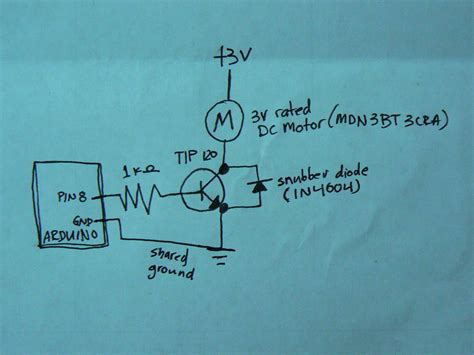 +3V
M
3V rated
DC Motor (MDN3BT3CRA)
TIP 120
1kΩ
snubber diode
(1N4004)
PIN 8
GND
ARDUINO
shared
ground